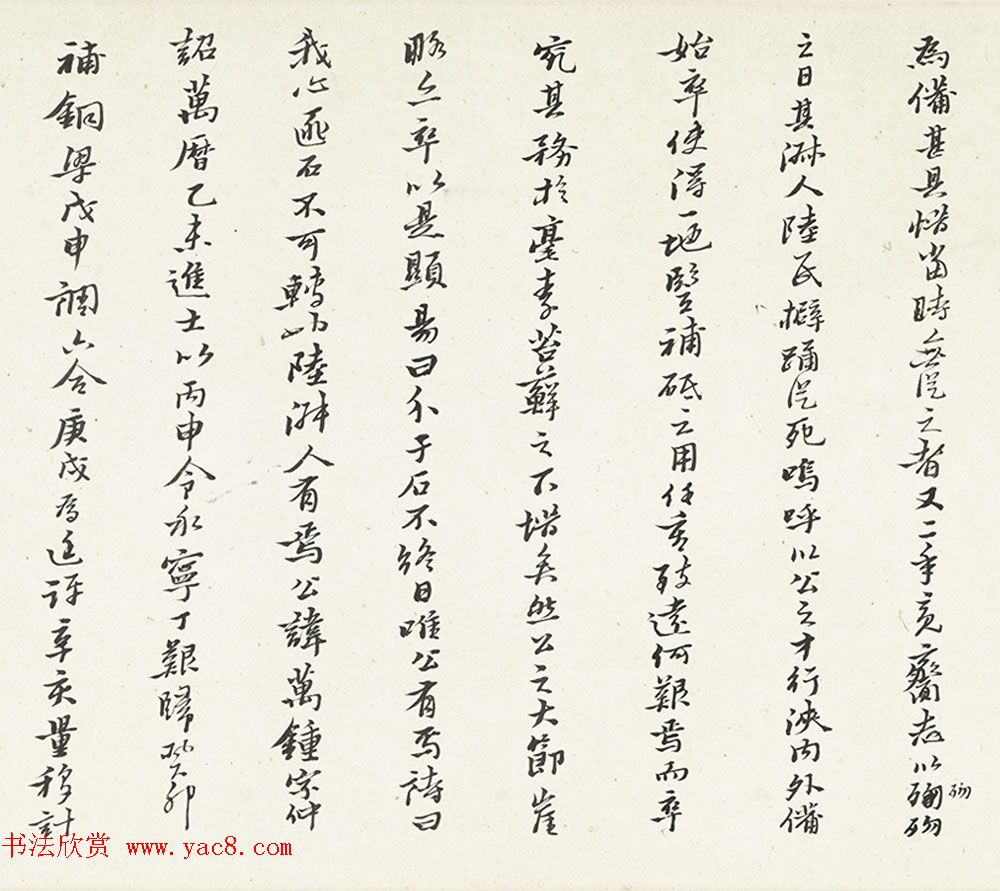 為備甚具惜當時無從之者又二年竟齎志以殉歿
歿
之日其淋人陸民擗踊從死嗚呼以公之才行浹內外備
始卒使得一地豎補砥之用任重致遠何艱焉而卒
究其務於臺李苔蘚之下惜矣然公之大節崖
略亦卒以是顯易曰介于石不終日唯公有焉詩曰
我心匪石不可轉也陸淋人有焉公諱萬鍾字仲
詔萬曆乙未進士以丙申令永寧丁艱歸癸卯
補銅梁戊申調六合庚戌為廷評辛亥量移計
书法欣赏 www.yac8.com